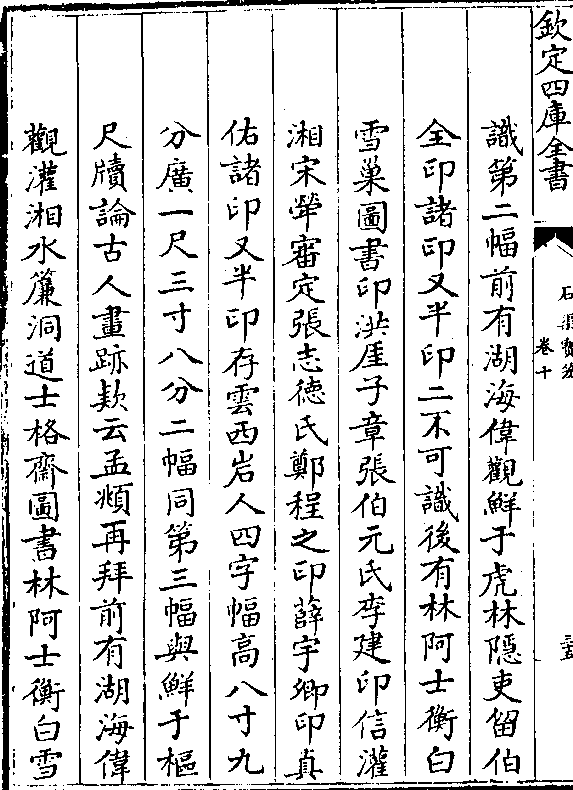 欽定四庫全書
卷十
識第二幅前有湖海偉觀鮮于虎林隱吏留伯
全印諸印又半印二不可識後有林阿士衡白
雪巢圖書印洪厓子章張伯元氏李建印信灌
湘宋犖審定張志德氏鄭程之印薛宇卿印真
佑諸印又半印存雲西岩人四字幅高八寸九
分廣一尺三寸八分二幅同第三幅與鮮于樞
尺牘論古人畫跡欵云孟頫再拜前有湖海偉
觀灌湘水簾洞道士格齋圖書林阿士衡白雪